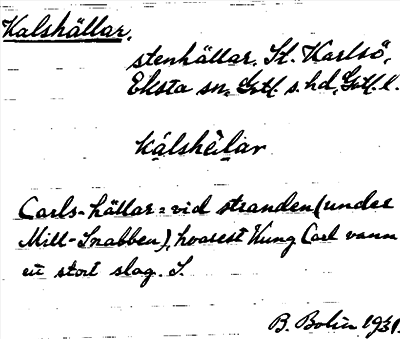 Kalshällar,
stenhällar, St. Karlsö,
Eksta sn, Gotl. s. hd, Gotl. l.
kálshělar
Carls-hällar = vid stranden (under
Mill-Snabben), hvarest Kung Carl vann
ett stort slag. S.
B. Bolin 1931.